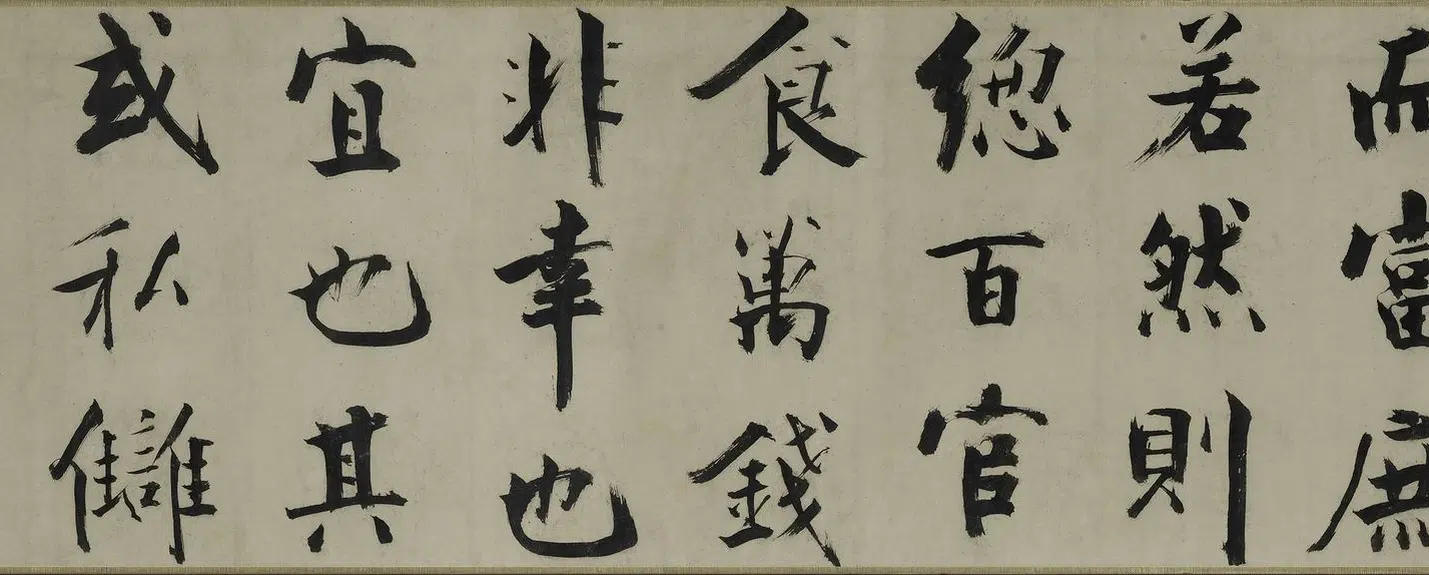 而富庶
若然則
總百官
食萬錢
非幸也
宜也其
或私讎